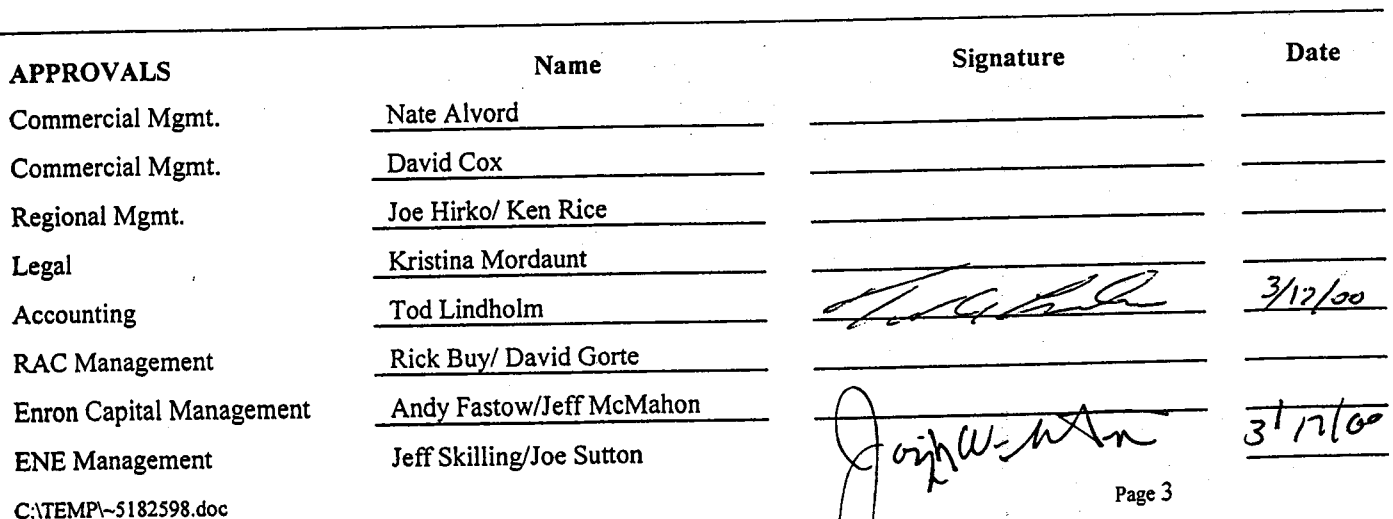 APPROVALS Name Signature Date
Commercial Mgmt. Nate Alvord
Commercial Mgmt. David Cox
Regional Mgmt. Joe Hirko/ Ken Rice
Legal Kristina Mordaunt
Accounting Tod Lindholm 3/17/00
RAC Management Rick Buy/ David Gorte
Enron Capital Management Andy Fastow/Jeff McMahon
ENE Management Jeff Skilling/Joe Sutton 3/17/00
C:\TEMP\~5182598.doc Page 3